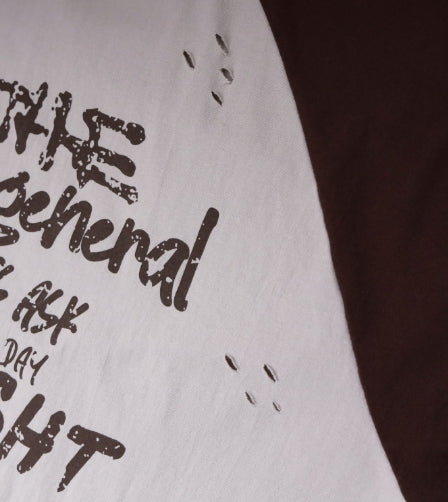 THE
general
ASK
DAY